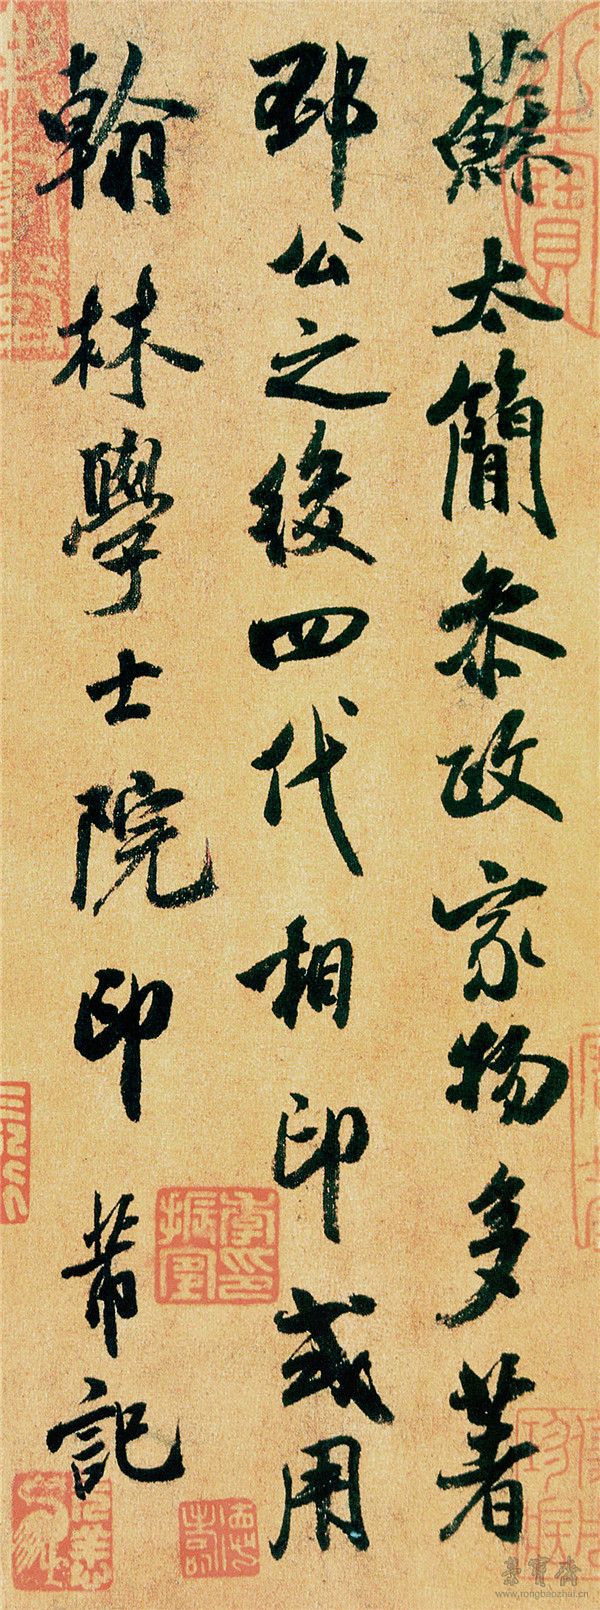 蘇太簡參政家物多著
邳公之後四代相印或用
翰林學士院印 芾記
榮寶齋
www.rongbaozhai.cn